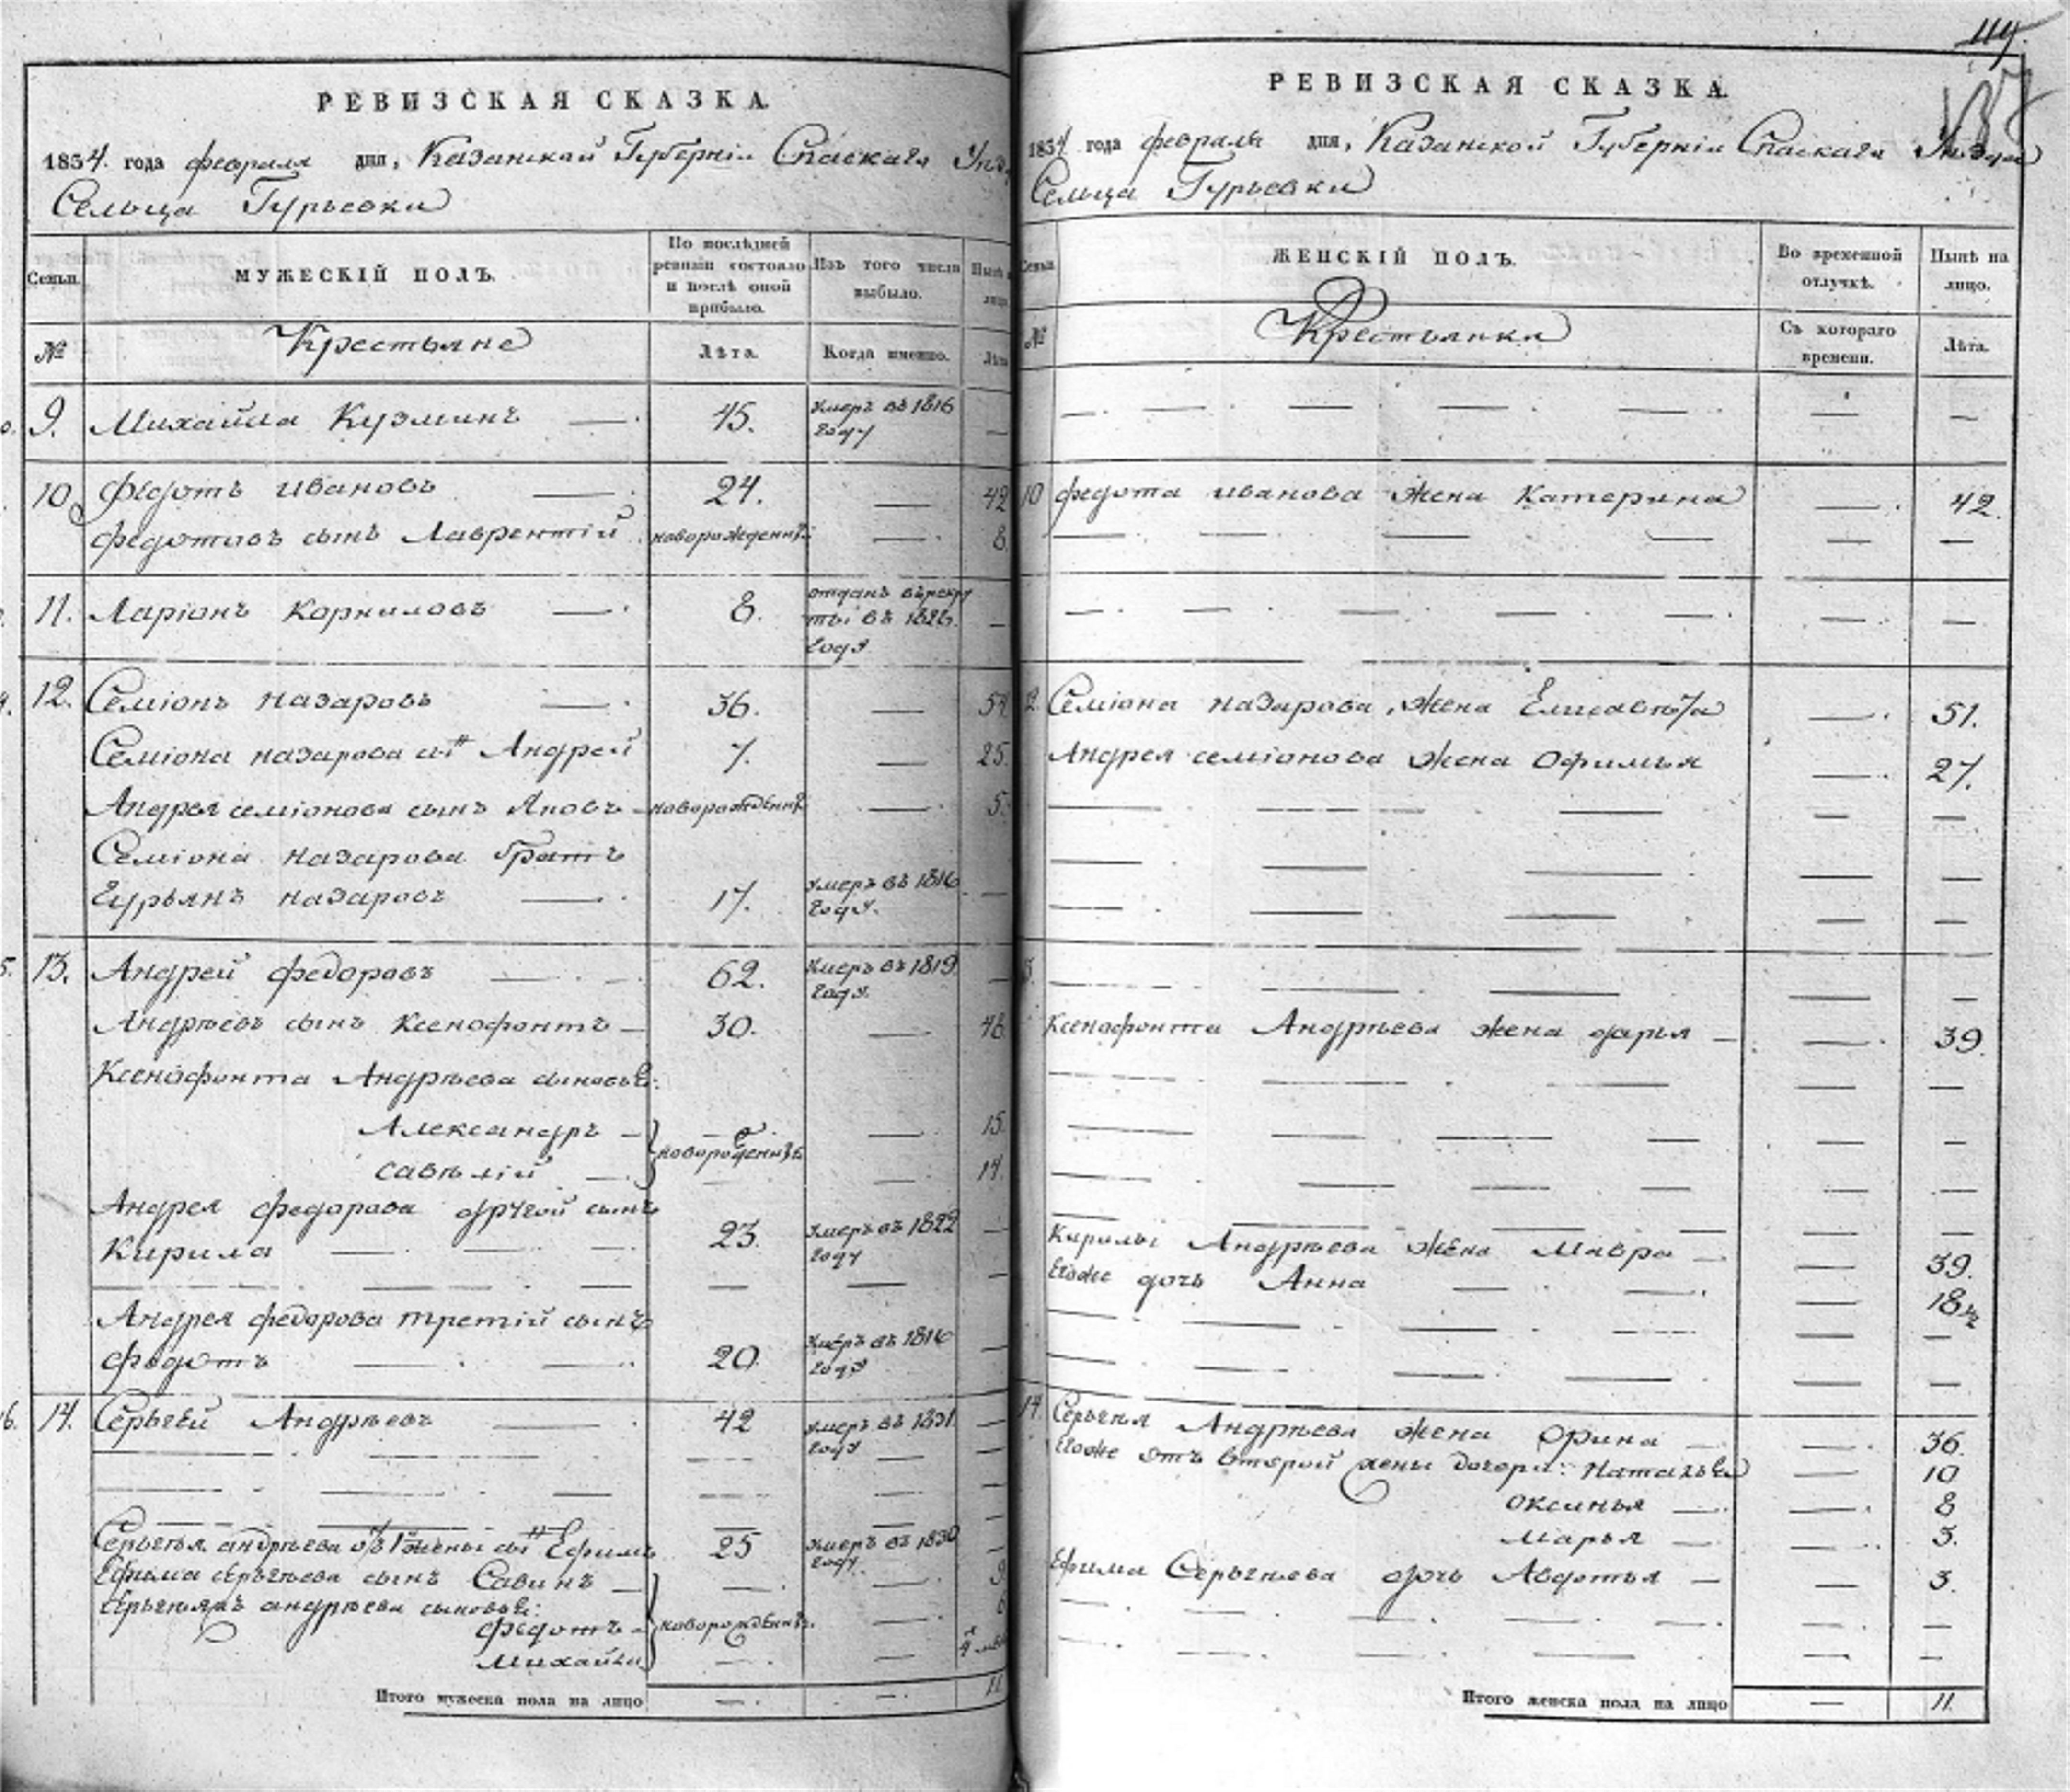 РЕВИЗСКАЯ СКАЗКА.
1834. года февраля дня, Казанской Губерніи Спаскаго
Сельца Гурьевки
Семьи.
МУЖЕСКІЙ ПОЛЪ.
По послѣдней ревизіи состояло и послѣ оной прибыло.
Изъ того числа выбыло.
№
Крестьяне
Лѣта.
Когда именно.
9. Михайла Кузминъ — 45. умеръ въ 1816 году —
10 Федотъ Ивановъ — 24. — 42
Федотовъ сынъ Лаврентій новорожденный — 8.
11. Ларіонъ Корниловъ — 8. отданъ въ рекруты въ 1828. году —
12. Семіонъ Назаровъ — 36. — 54
Семіона Назарова сынъ Андрей 7. — 25.
Андрея семіонова сынъ Яковъ — новорожденный — 5.
Семіона Назарова братъ
Гурьянъ Назаровъ — 17. умеръ въ 1816 году. —
13. Андрей Федоровъ — 62. умеръ въ 1819 году. —
Андрѣевъ сынъ Ксенофонтъ — 30. — 48
Ксенофонта Андрѣева сыновья:
Александръ — новорожденные — 15.
Савѣлій — — 14.
Андрея Федорова другой сынъ
Кирила — 23. умеръ въ 1822 году —
Андрея Федорова третій сынъ
Федотъ — 20. умеръ въ 1816 году —
14. Серьгей Андрѣевъ — 42 умеръ въ 1831. году —
Серьгѣя андрѣева отъ 1й жены сынъ Ефимъ 25 умеръ въ 1830 году —
Ефима серьгѣева сынъ Савинъ — — 9
андрѣева сыновья:
Федотъ — новорожденные —
Михайла —
Итого мужеска пола на лицо — — 11
114.
РЕВИЗСКАЯ СКАЗКА.
1834 года февраля дня, Казанской Губерніи Спаскаго Уѣзда
Сельца Гурьевки
Семьи.
ЖЕНСКІЙ ПОЛЪ.
Во временной отлучкѣ.
Нынѣ на лицо.
№
Крестьянки
Съ котораго времени.
Лѣта.
10 Федота Иванова жена Катерина — 42.
12. Семіона Назарова жена Елисавета — 51.
Андрея семіонова жена Офимья — 27.
13.
Ксенофонта Андрѣева жена Дарья — 39.
Кирилы Андрѣева жена Мавра — 39.
Егоже дочь Анна — 18½
14. Серьгѣя Андрѣева жена Орина — 36.
Егоже отъ второй жены дочери: Наталья — 10
Оксинья — 8
Марья — 3.
Ефима Серьгѣева дочь Авдотья — 3.
Итого женска пола на лицо — 11.